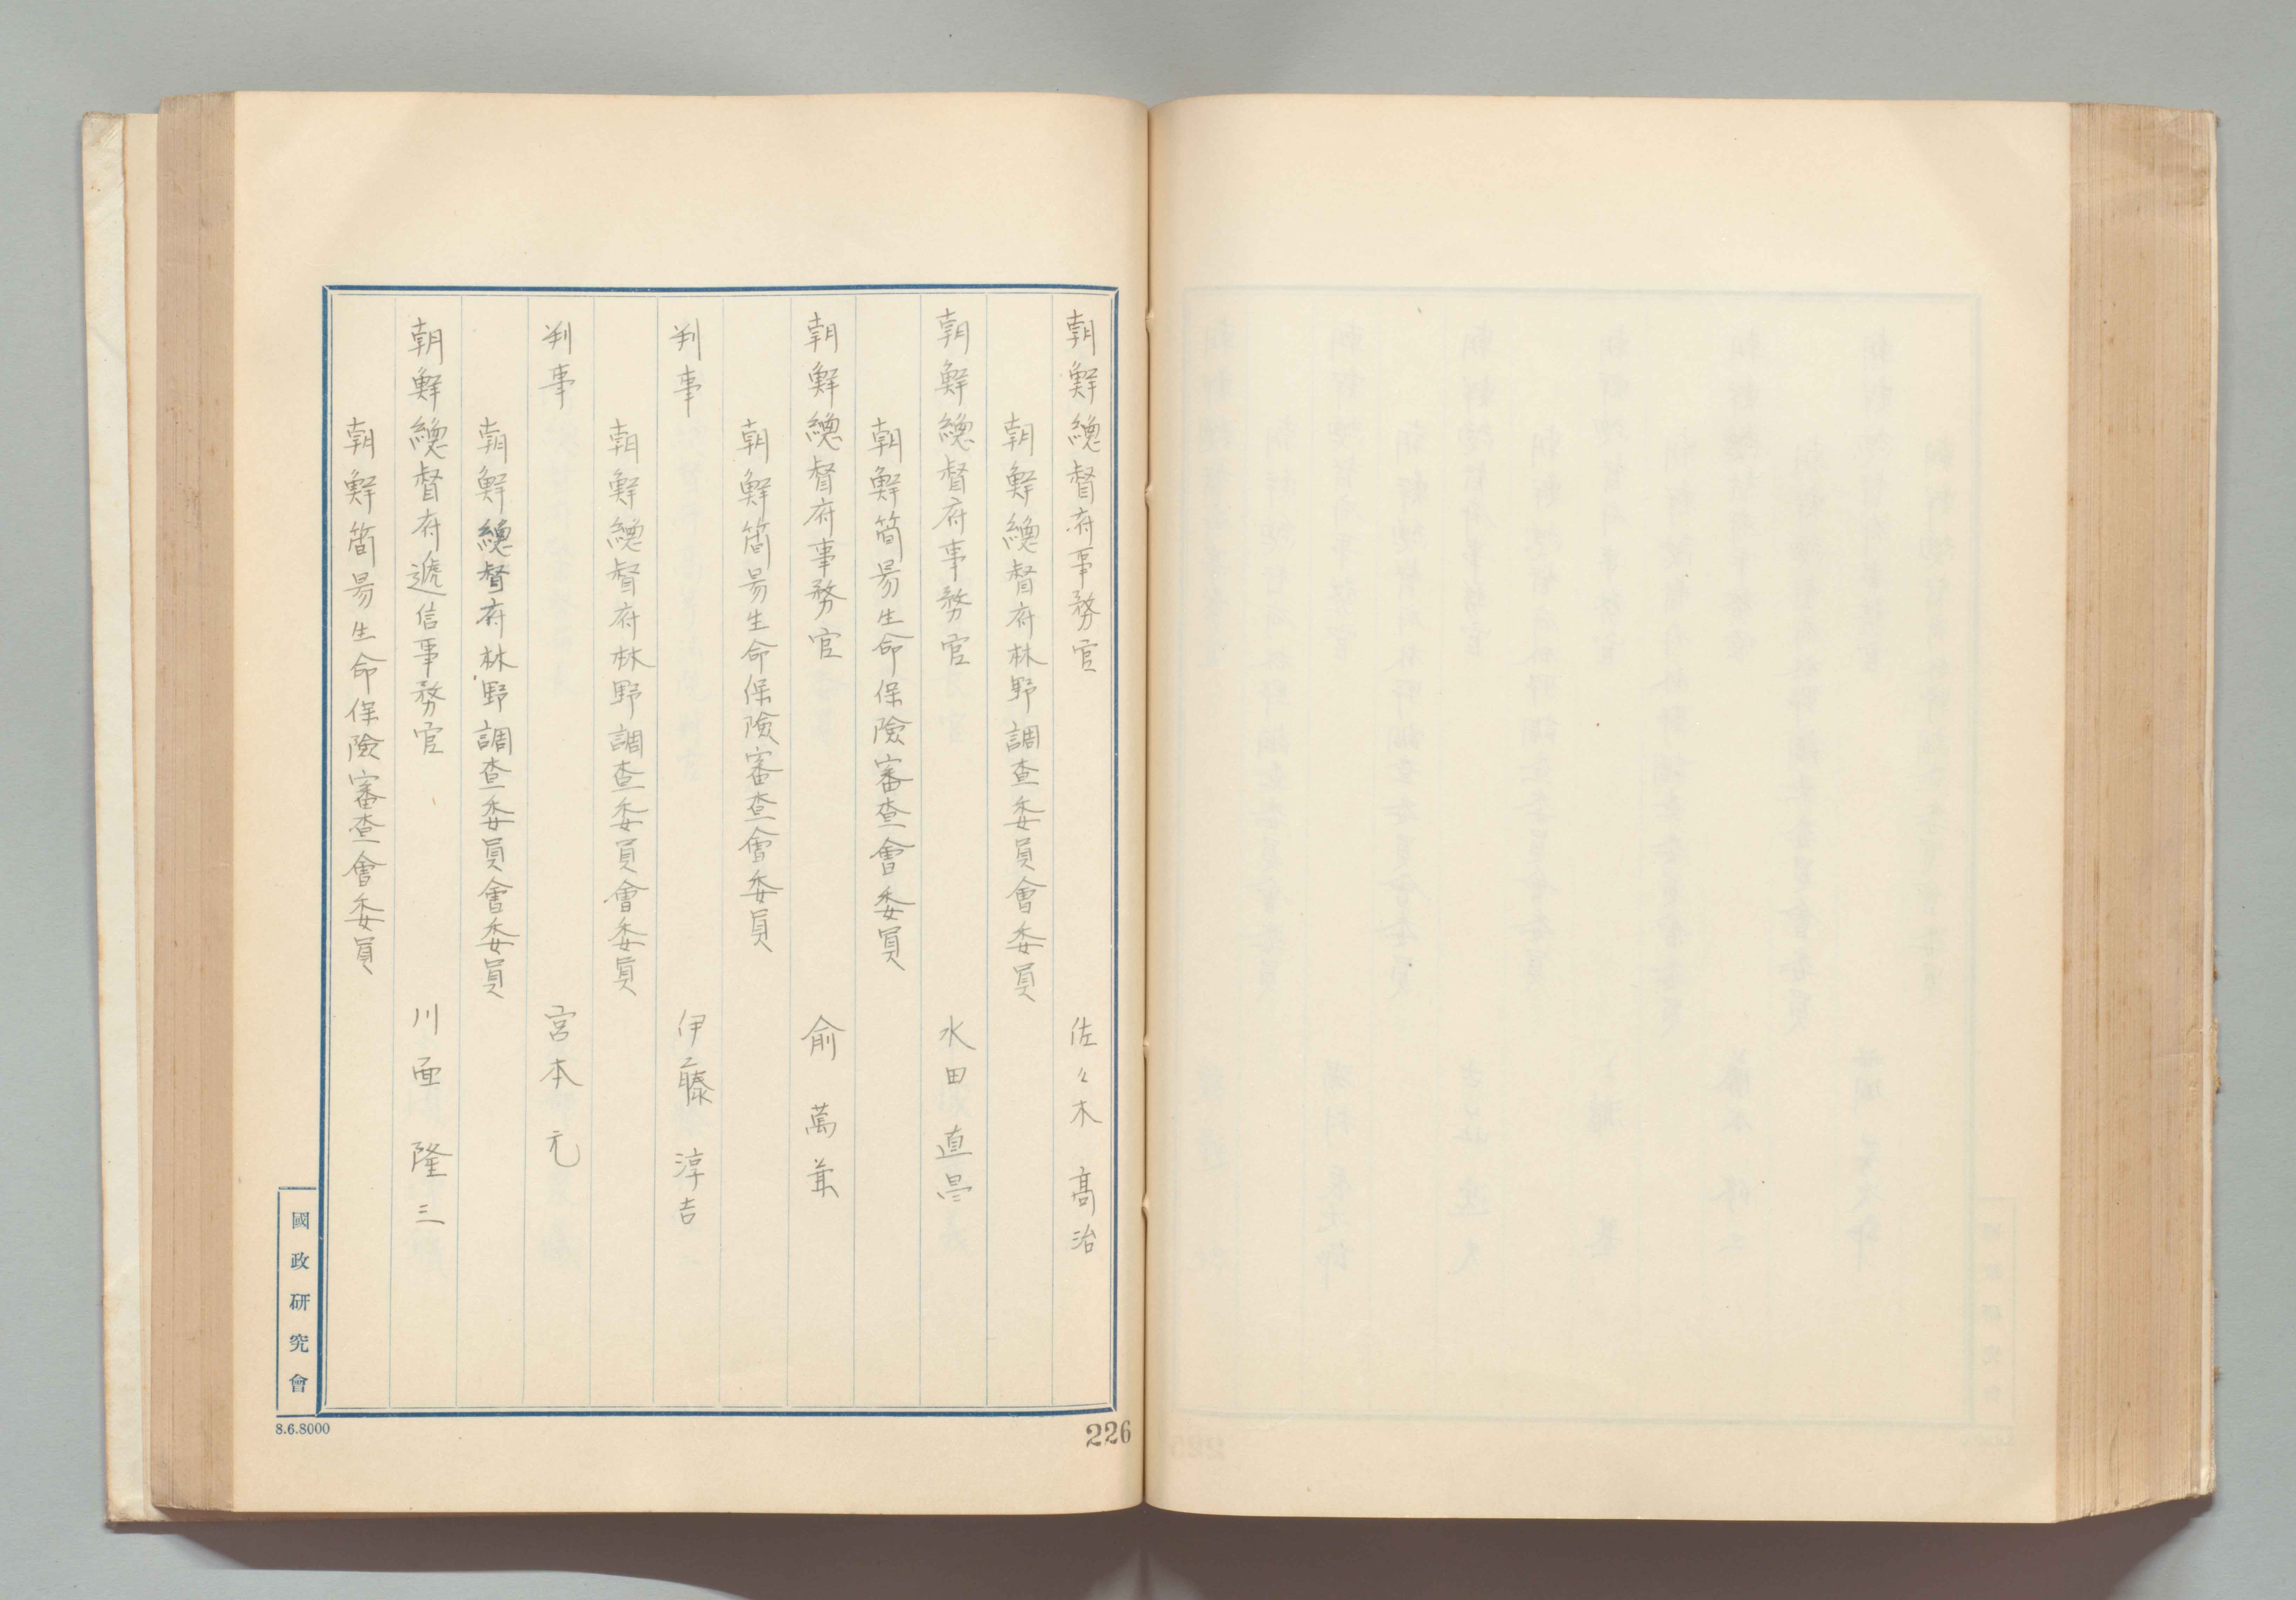 朝鮮總督府事務官　佐々木高治
朝鮮總督府林野調査委員會委員
朝鮮總督府事務官　水田直昌
朝鮮簡易生命保險審査會委員
朝鮮總督府事務官　俞萬兼
朝鮮簡易生命保險審査會委員
判事　伊藤淳吉
朝鮮總督府林野調査委員會委員
判事　宮本元
朝鮮總督府林野調査委員會委員
朝鮮總督府遞信事務官　川面隆三
朝鮮簡易生命保險審査會委員
國政研究會
8.6.8000
226